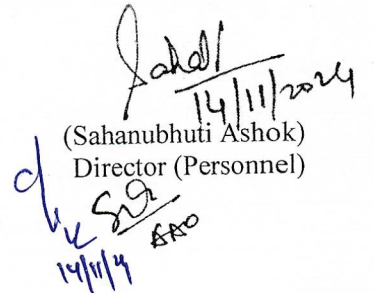 14/11/2024
(Sahanubhuti Ashok)
Director (Personnel)
AAO
14/11/24